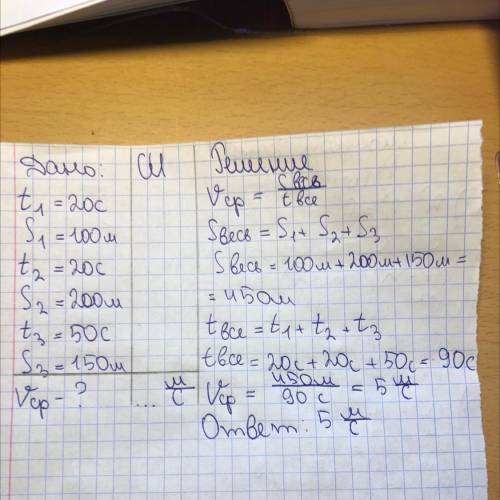 Дано:
t₁ = 20с
S₁ = 100м
t₂ = 20с
S₂ = 200м
t₃ = 50с
S₃ = 150м
Vср - ?
СИ
... м/с
Решение
Vср = Sвсв/tвсе
Sвесь = S₁ + S₂ + S₃
Sвесь = 100м + 200м + 150м =
= 450м
tвсе = t₁ + t₂ + t₃
tвсе = 20с + 20с + 50с = 90с
Vср = 450м/90 с = 5 м/с
Ответ: 5 м/с